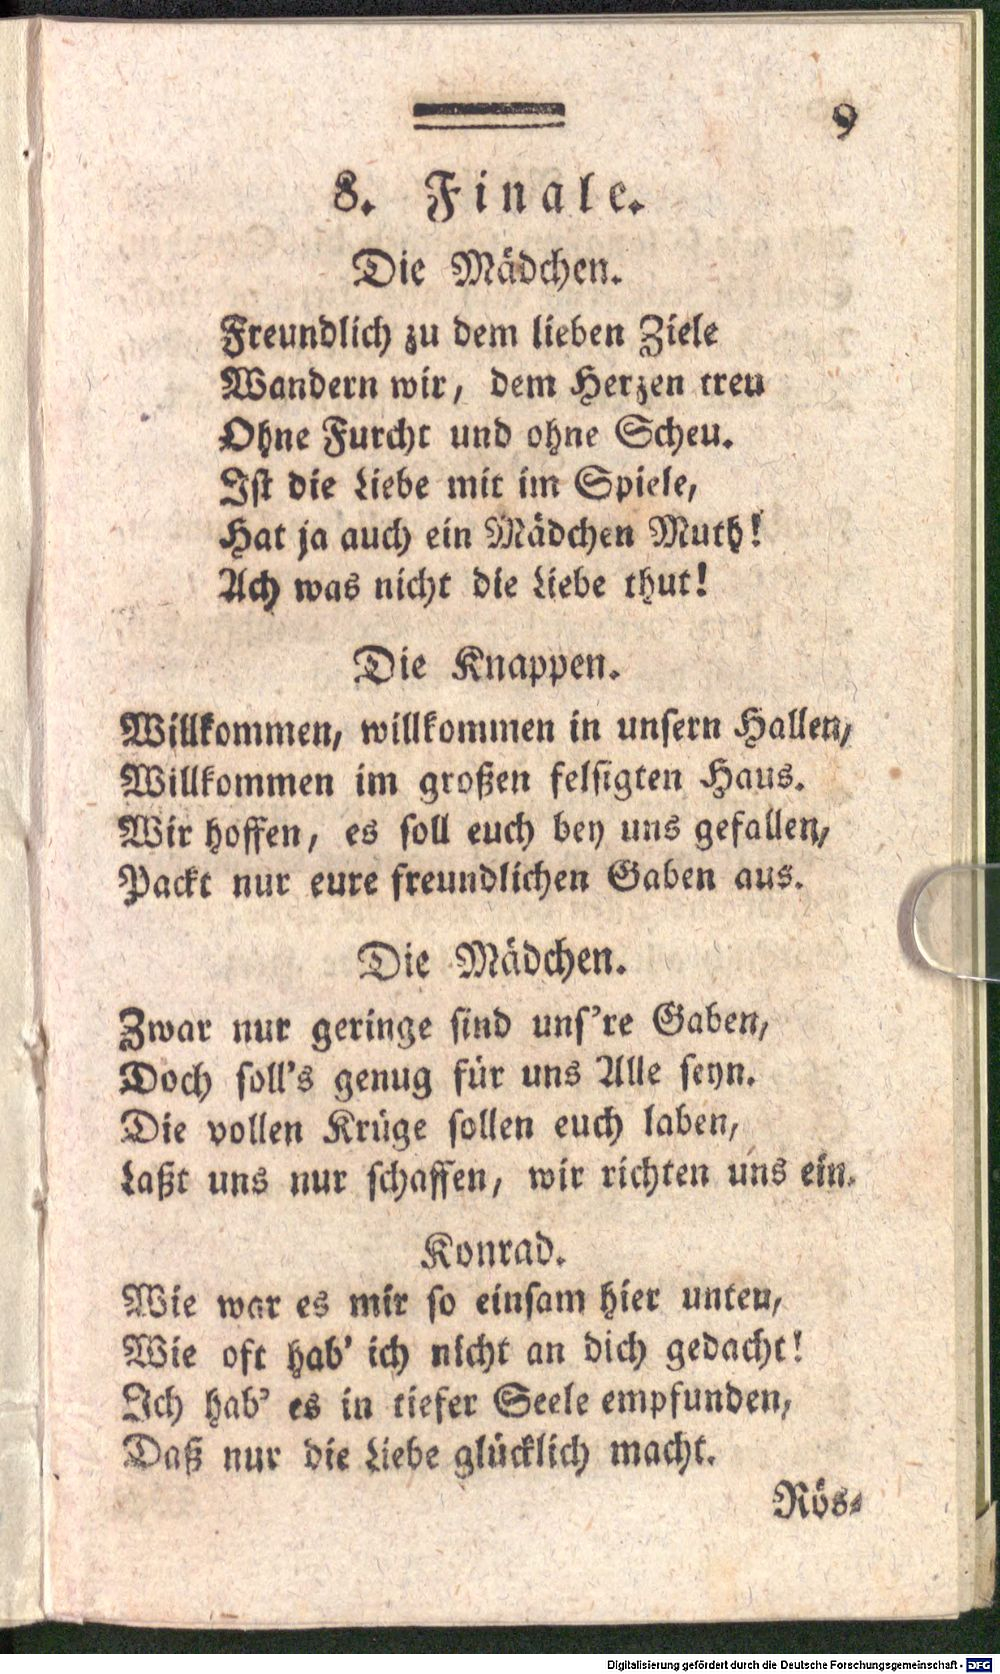 9
8. Finale.
Die Mädchen.
Freundlich zu dem lieben Ziele
Wandern wir, dem Herzen treu
Ohne Furcht und ohne Scheu.
Ist die Liebe mit im Spiele,
Hat ja auch ein Mädchen Muth!
Ach was nicht die Liebe thut!
Die Knappen.
Willkommen, willkommen in unsern Hallen,
Willkommen im großen felsigten Haus.
Wir hoffen, es soll euch bey uns gefallen,
Packt nur eure freundlichen Gaben aus.
Die Mädchen.
Zwar nur geringe sind uns're Gaben,
Doch soll's genug für uns Alle seyn.
Die vollen Krüge sollen euch laben,
Laßt uns nur schaffen, wir richten uns ein.
Konrad.
Wie war es mir so einsam hier unten,
Wie oft hab' ich nicht an dich gedacht!
Ich hab' es in tiefer Seele empfunden,
Daß nur die Liebe glücklich macht.
Rös-
Digitalisierung gefördert durch die Deutsche Forschungsgemeinschaft - DFG